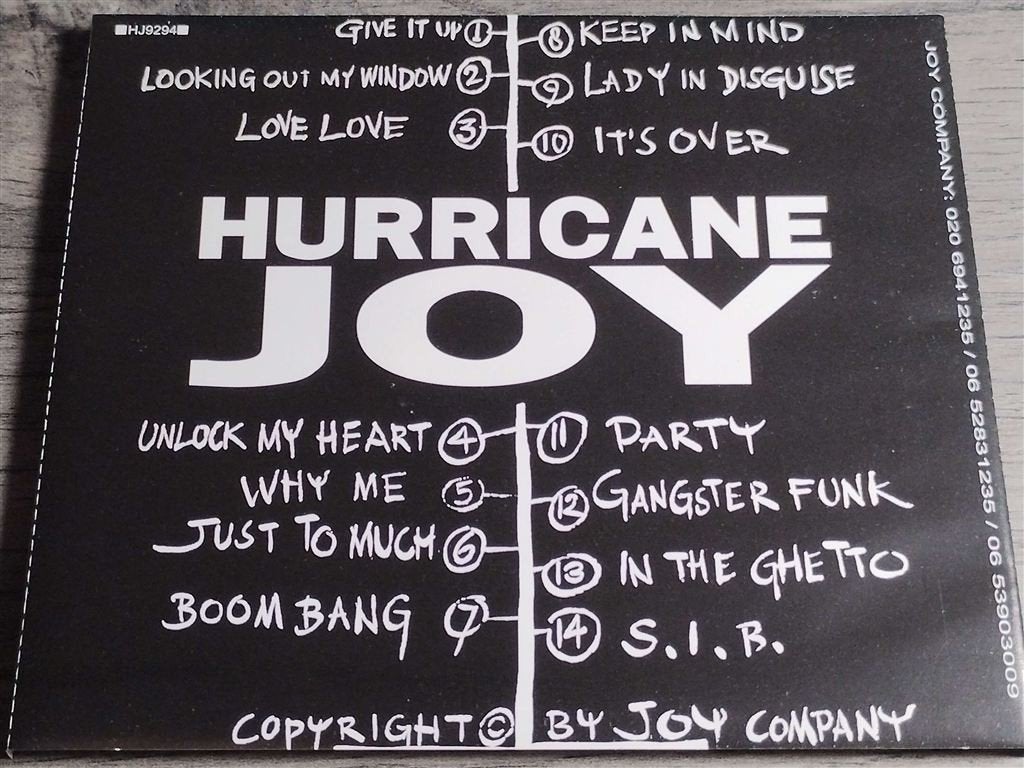 ■HJ9294■
GIVE IT UP 1
LOOKING OUT MY WINDOW 2
LOVE LOVE 3
8 KEEP IN MIND
9 LADY IN DISGUISE
10 IT'S OVER
HURRICANE
JOY
UNLOCK MY HEART 4
WHY ME 5
JUST TO MUCH 6
BOOM BANG 7
11 PARTY
12 GANGSTER FUNK
13 IN THE GHETTO
14 S.I.B.
COPYRIGHT © BY JOY COMPANY
JOY COMPANY: 020 6941235 / 06 52831235 / 06 53903009